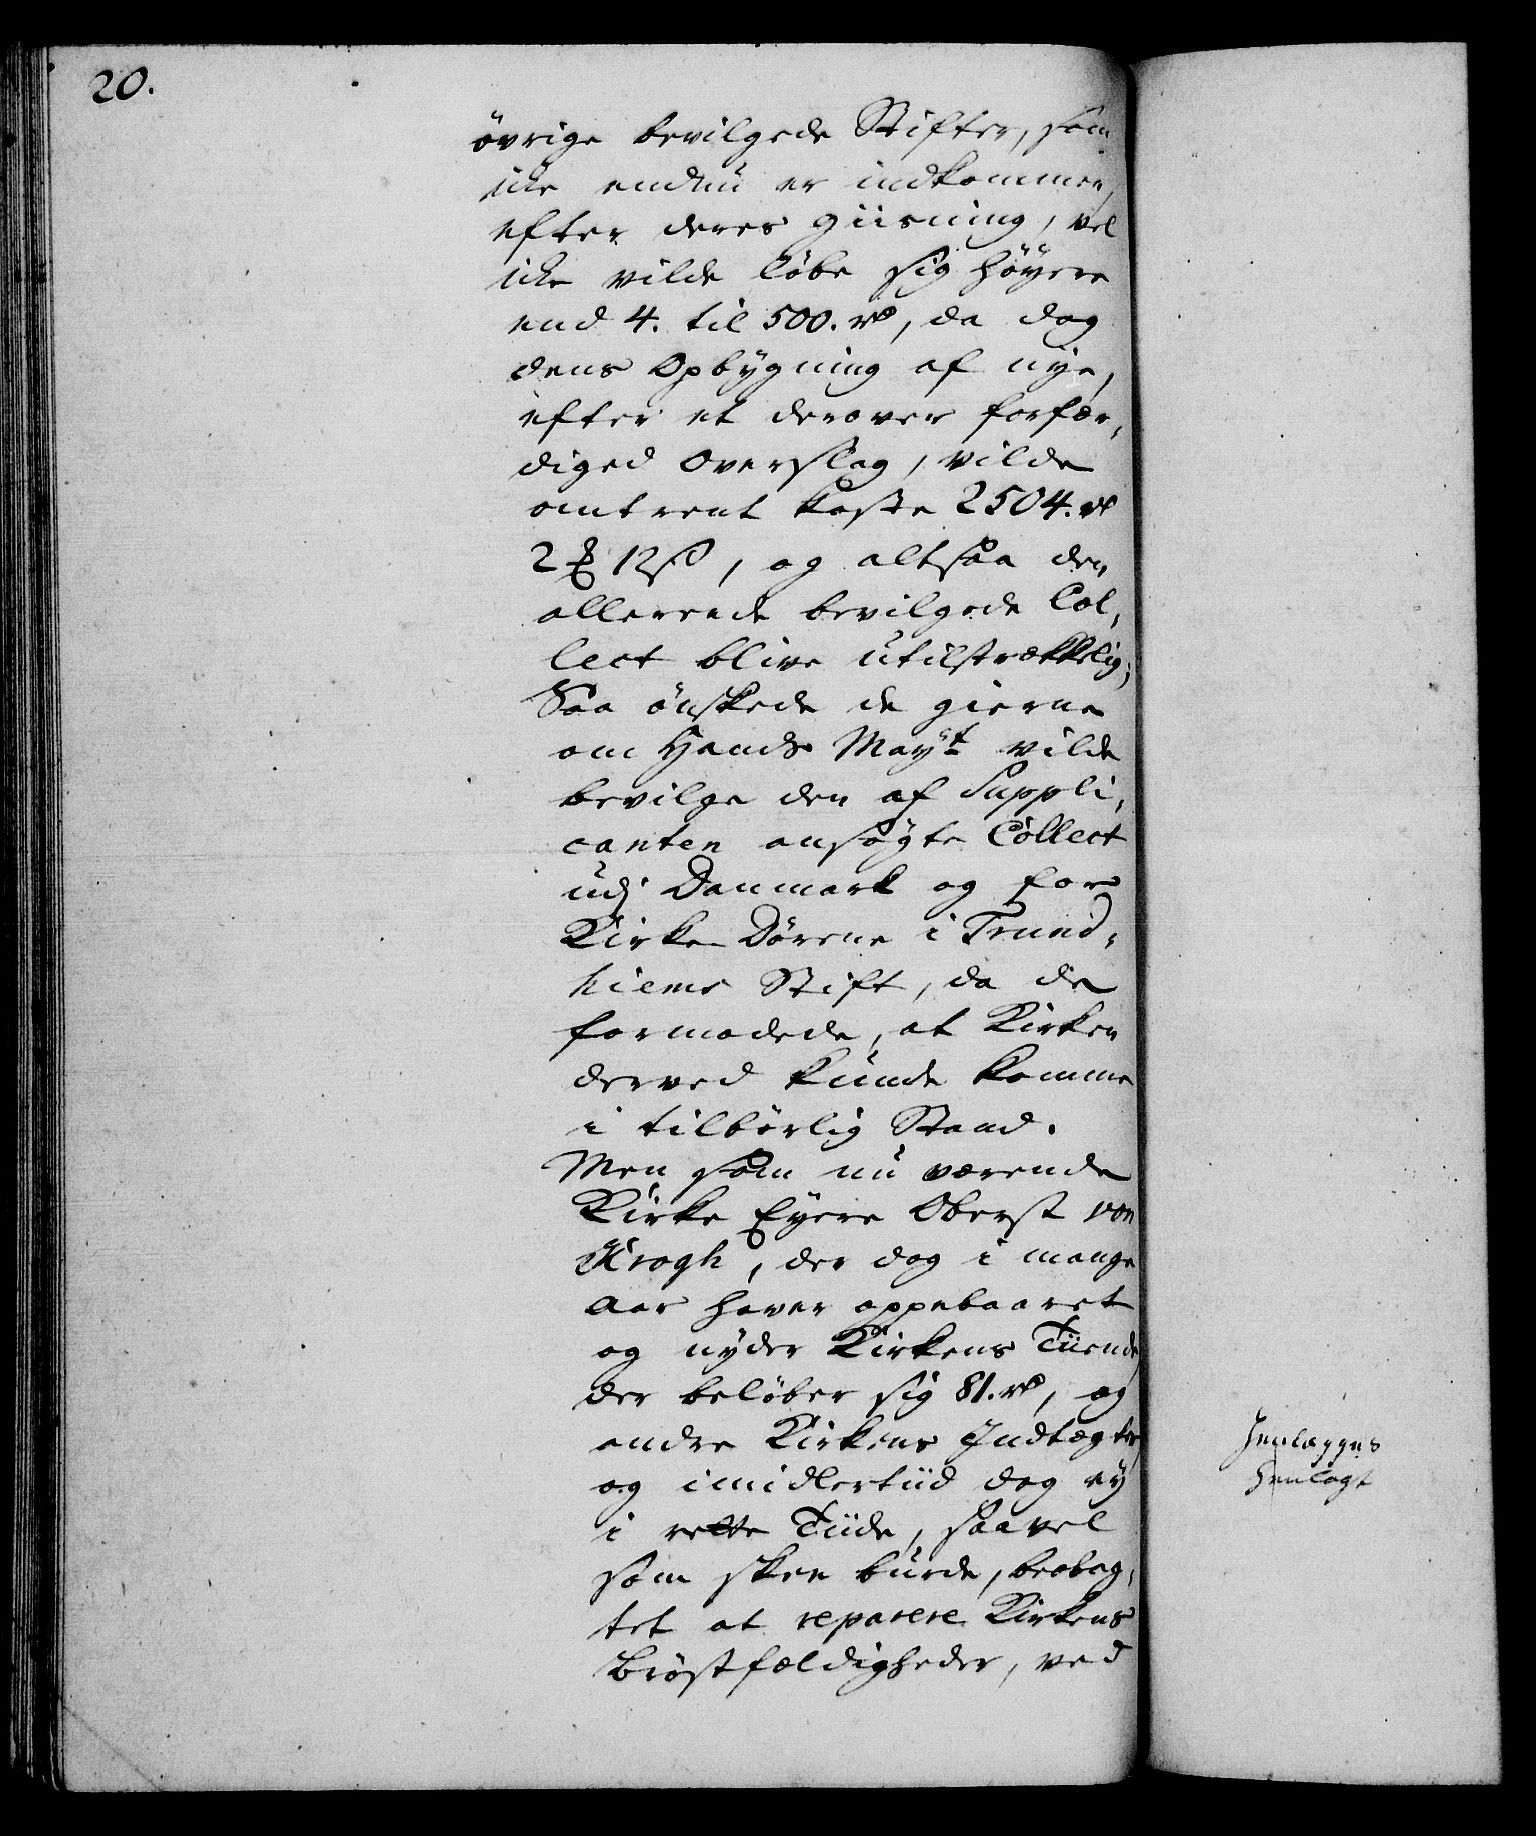 20.
övrige bevilgede Stifter, som
icke endnu er indkommen,
efter deres giisning, vel
icke vilde løbe sig höyere
end 4. til 500. rd, da dog
dens Opbygning af nye,
efter et derover forfær,
diged Overslag, vilde
omtrent koste 2504. rd
2 ₰ 12 ß, og altsaa den
allereede bevilgede Col,
lect blive utilstrækkelig;
Saa önskede de gierne
om Hands Mayt vilde
bevilge den af Suppli,
canten ansøgte Collect
udj Danmark og for
Kirke Dörene i Trund,
hiems Stift, da de
formodede, at Kirken
derved kunde komme
i tilbörlig Stand.
Men som nu værende
Kirke Eyere Oberst von
Krogh, der dog i mange
Aar haver oppebaaret
og nyder Kirkens Tiende
der belöber sig 81. rd, og
andre Kirkens Indtægter,
og imidlertiid dog ey
i rette Tiide, saavel
som skee burde, beobag,
tet at reparere Kirkens
Bröstfældigheder, ved
Henlægges
Henlagt